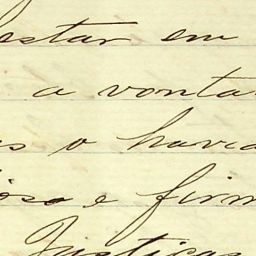 estar em
a vonta
s o havia
oso e firm
Justiças